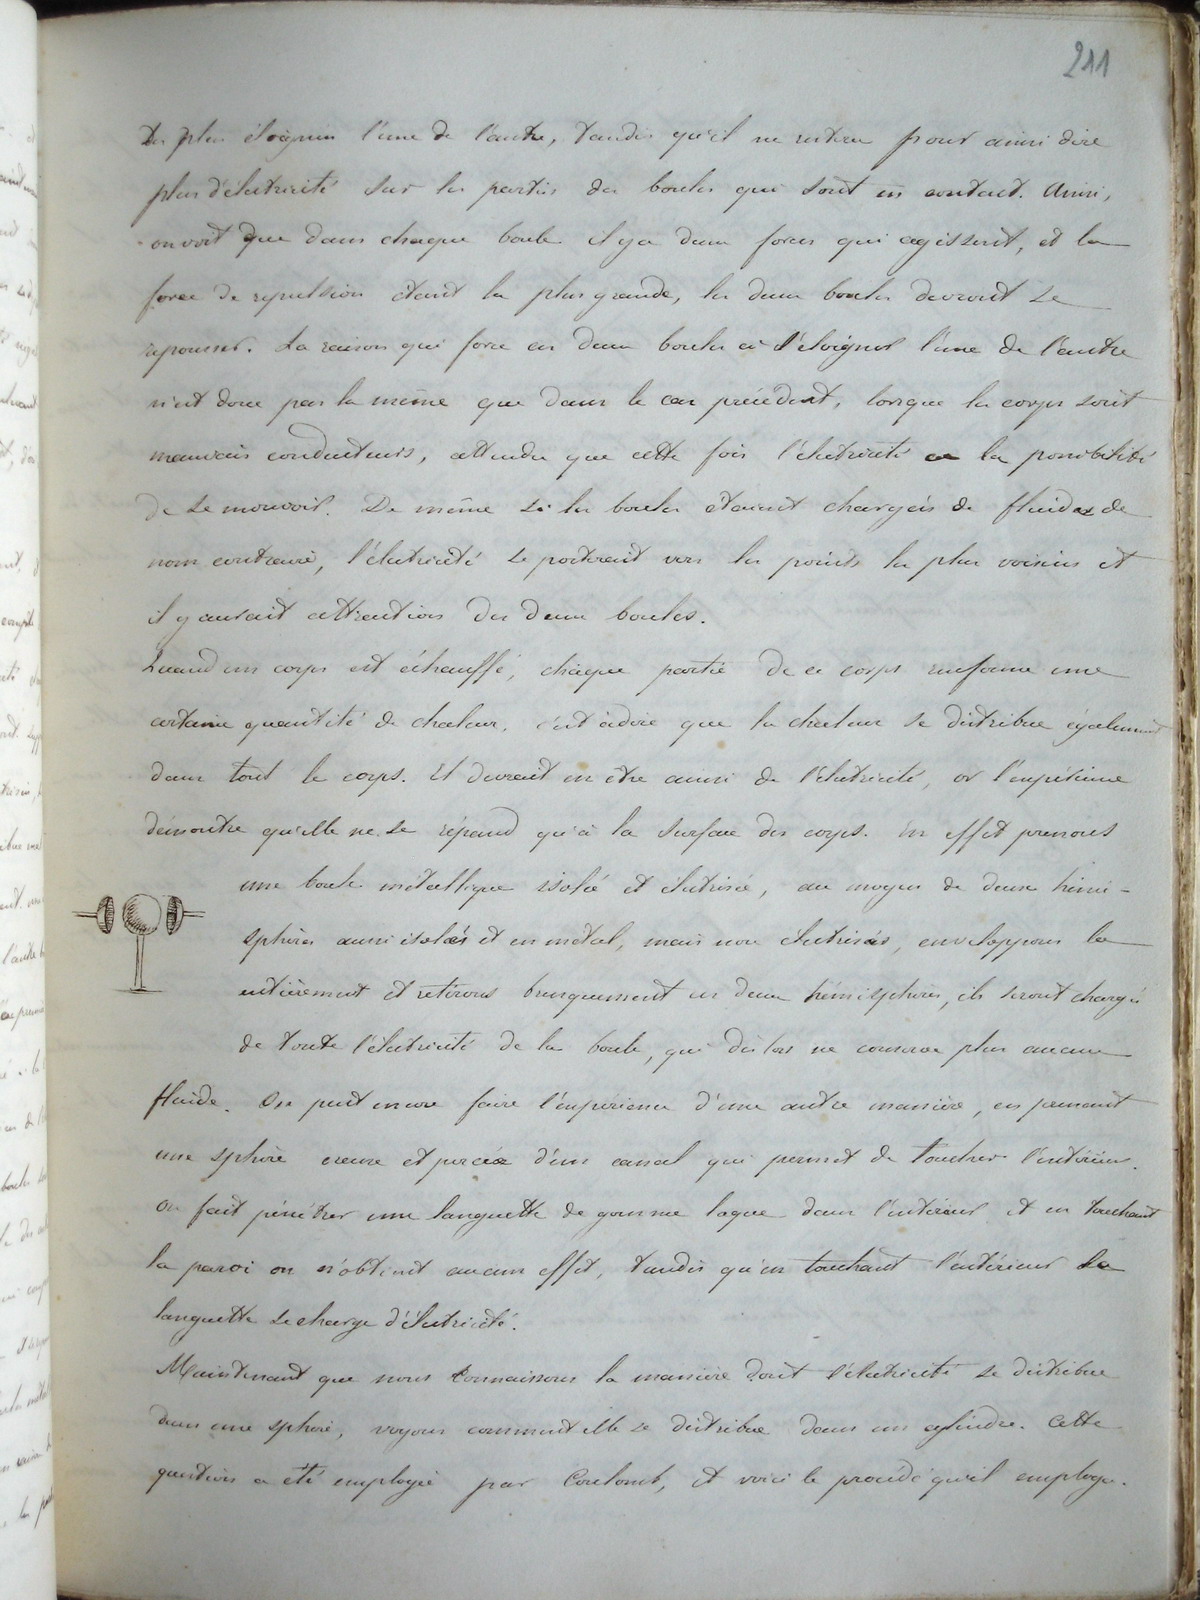 211
les plus éloignées l'une de l'autre, tandis qu'il ne restera pour ainsi dire
plus d'électricité sur les parties des boules qui sont en contact. Ainsi,
on voit que dans chaque boule il y a deux forces qui agissent, et la
force de répulsion étant la plus grande, les deux boules devront se
repousser. La raison qui force ces deux boules à s'éloigner l'une de l'autre
n'est donc pas la même que dans le cas précédent, lorsque les corps sont
mauvais conducteurs, attendu que cette fois l'électricité a la possibilité
de se mouvoir. De même si les boules étaient chargées de fluides de
nom contraire, l'électricité se porterait vers les points les plus voisins et
il y aurait attraction des deux boules.
Quand un corps est échauffé, chaque partie de ce corps renferme une
certaine quantité de chaleur, c'est à dire que la chaleur se distribue également
dans tout le corps. Il devrait en être ainsi de l'électricité, or l'expérience
démontre qu'elle ne se répand qu'à la surface des corps. En effet prenons
une boule métallique isolée et électrisée, au moyen de deux hémi-
sphères aussi isolés et en métal, mais non électrisés, enveloppons la
entièrement et retirons brusquement ces deux hémisphères, ils seront chargés
de toute l'électricité de la boule, qui dès lors ne conserve plus aucun
fluide. On peut encore faire l'expérience d'une autre manière, en prenant
une sphère creuse et percée d'un canal qui permet de toucher l'intérieur.
On fait pénétrer une languette de gomme laque dans l'intérieur et en touchant
la paroi on n'obtient aucun effet, tandis qu'en touchant l'extérieur la
languette se charge d'électricité.
Maintenant que nous connaissons la manière dont l'électricité se distribue
dans une sphère, voyons comment elle se distribue dans un cylindre. Cette
question a été employée par Coulomb, et voici le procédé qu'il employa.